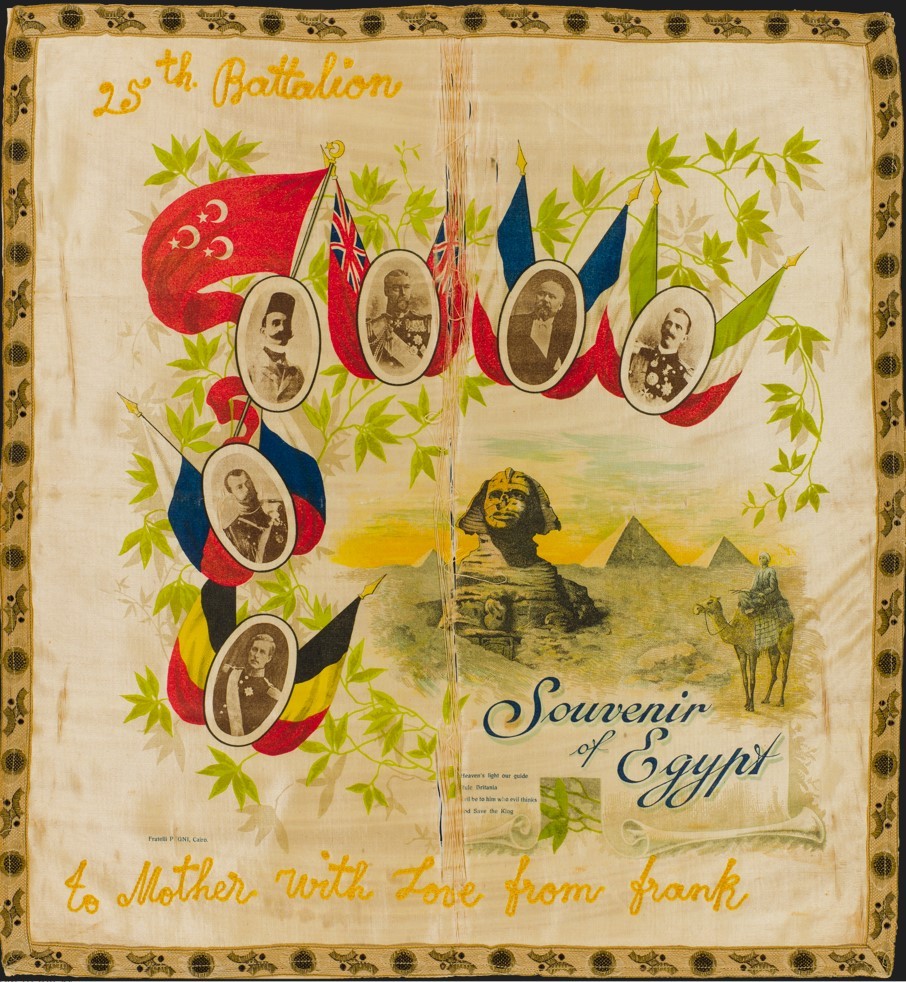 25th. Battalion
Souvenir
of Egypt
Heaven's light our guide
Rule Britania
evil be to him who evil thinks
God Save the King
Fratelli P GNI, Cairo.
to Mother with Love from frank